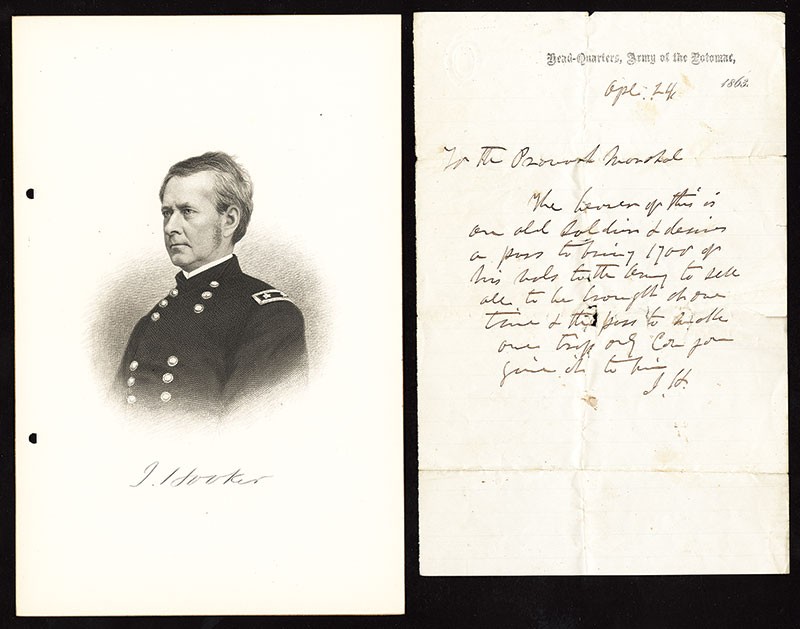 J. Hooker
Head-Quarters, Army of the Potomac,
Apl. 24 1863.
To the Provost Marshal
The bearer of this is
an old soldier & desires
a pass to bring 1700 of
his to the Army to sell
all to be brought at one
time & the pass to make
one trip only Can you
give it to him
J. H.